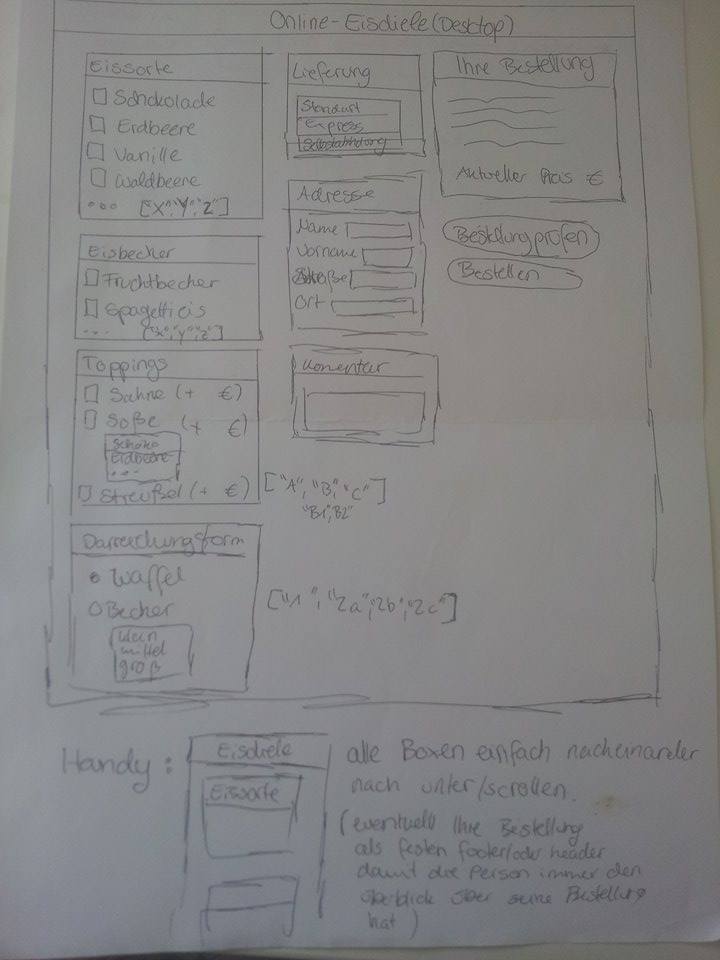 Online-Eisdiele (Desktop)
Eissorte
Schokolade
Erdbeere
Vanille
Waldbeere
... ["X","Y","Z"]
Eisbecher
Fruchtbecher
Spagettieis
... ["X","Y","Z"]
Toppings
Sahne (+ €)
Soße (+ €)
Schoko
Erdbeere
...
Streußel (+ €)
["A", "B", "C"]
"B1", B2"
Darreichungsform
Waffel
Becher
klein
mittel
groß
["1", "2a", "2b", "2c"]
Lieferung
Standart
Express
Selbstabholung
Adresse
Name
Vorname
Straße
Ort
Komentar
Ihre Bestellung
Aktueller Preis €
Bestellung prüfen
Bestellen
Handy:
Eisdiele
Eissorte
alle Boxen einfach nacheinander
nach unter/scrollen.
(eventuell Ihre Bestellung
als festen footer/oder header
damit die Person immer den
überblick über seine Bestellung
hat)